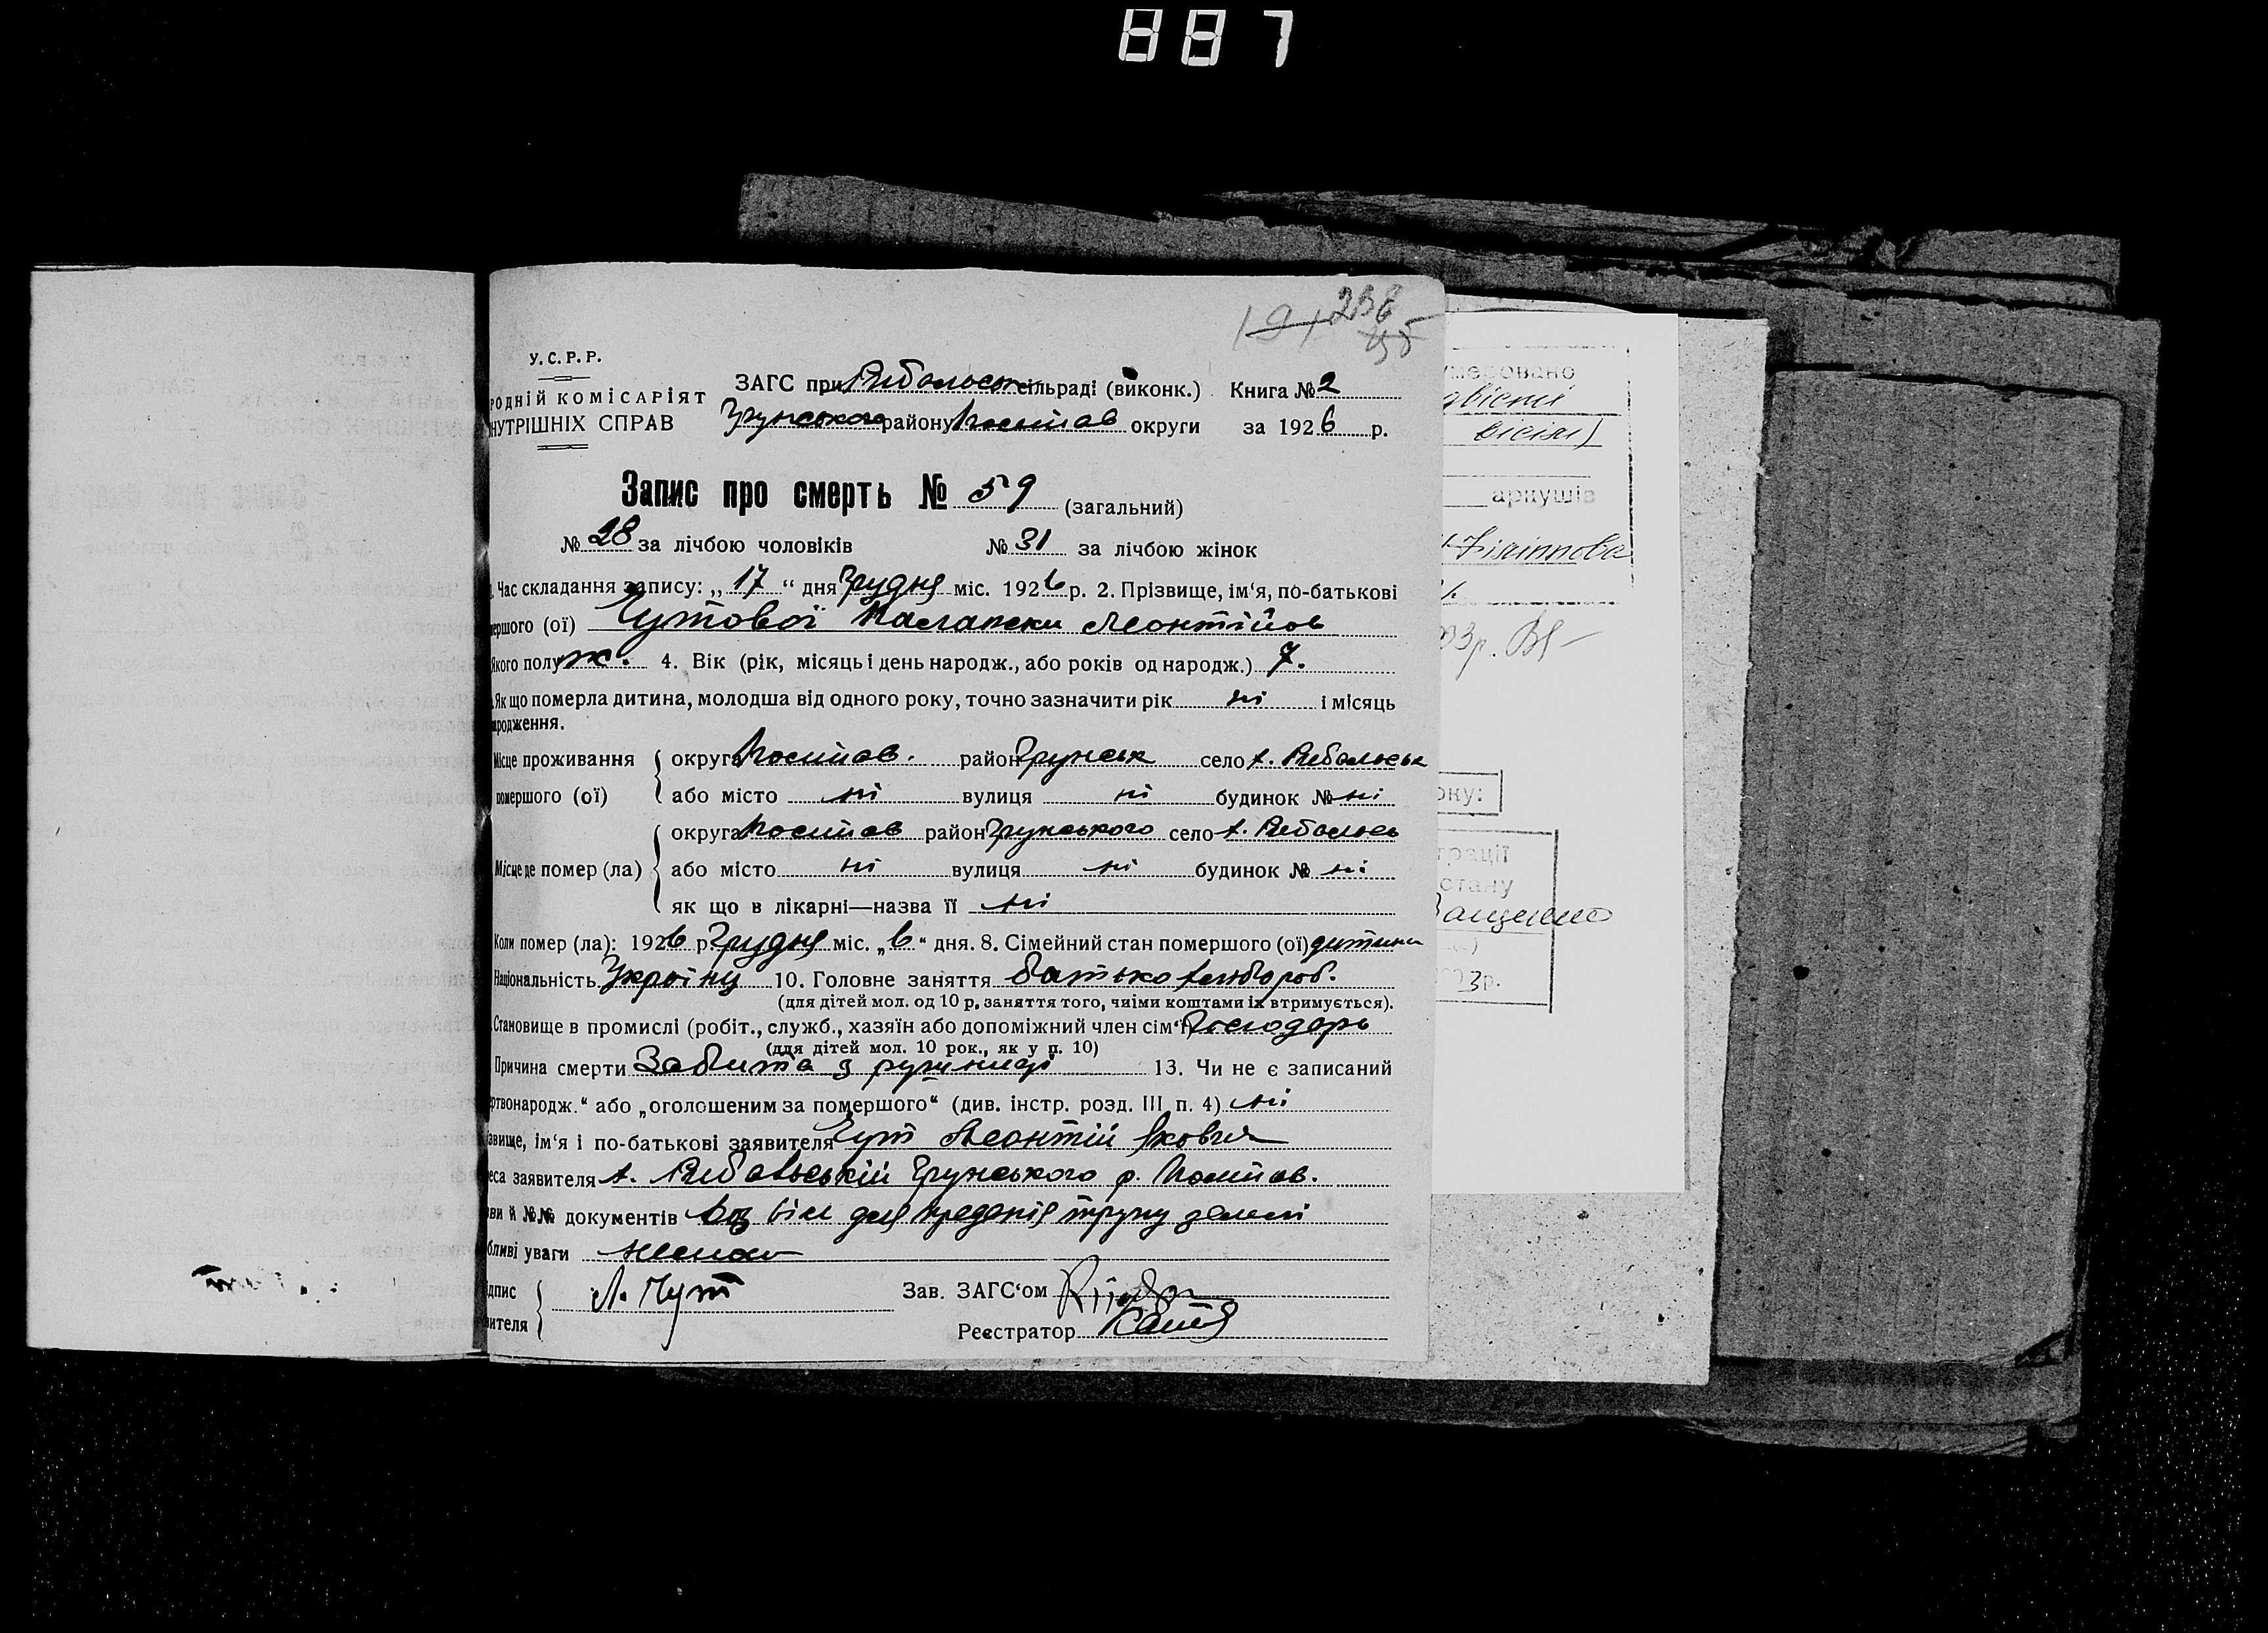 887
236
У.С.Р.Р.
РОДНІЙ КОМІСАРІЯТ
НУТРІШНІХ СПРАВ
ЗАГС при Рибальськ сільраді (виконк.) Книга № 2
Грунського району Полтав округи за 1926 р.
Запис про смерть № 59 (загальний)
№ 28 за лічбою чоловіків № 31 за лічбою жінок
Час складання запису: „17“ дня Грудня міс. 1926 р. 2. Прізвище, ім‘я, по-батькові
мершого (ої) Чутової Параски Леонтійов
Якого полу ж. 4. Вік (рік, місяць і день народж., або років од народж.) 7.
Як що померла дитина, молодша від одного року, точно зазначити рік ні і місяць
родження.
Місце проживання округа Полтав. район Грунськ село х. Рибальськ
помершого (ої) або місто ні вулиця ні будинок № ні
округа Полтав район Грунського село х. Рибальсь
Місце де помер (ла) або місто ні вулиця ні будинок № ні
як що в лікарні—назва її ні
Коли помер (ла): 1926 р. Грудня міс. „6“ дня. 8. Сімейний стан помершого (ої) дитина
Національність Україну 10. Головне заняття батько хлібороб.
(для дітей мол. од 10 р. заняття того, чиїми коштами їх втримується).
Становище в промислі (робіт., служб., хазяїн або допоміжний член сім‘ї) Господарь
(для дітей мол. 10 рок., як у п. 10)
Причина смерти Забита з рушниці 13. Чи не є записаний
ртвонародж.“ або „оголошеним за помершого“ (див. інстр. розд. III п. 4) ні
звище, ім‘я і по-батькові заявителя Чут Леонтій Якович
еса заявителя х. Рибальській Грунського р. Полтав.
зви й №№ документів для предання трупу землі
бливі уваги Немає
дпис Л. Чут Зав. ЗАГС‘ом
вителя Реєстратор
умеровано
двісті
вісім)
аркушів
Філіппова
03р.
оку:
рації
стану
ащенко
03р.